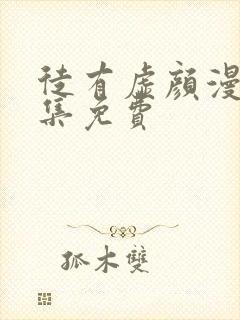 徒有虛顏漫
集免費
孤木雙